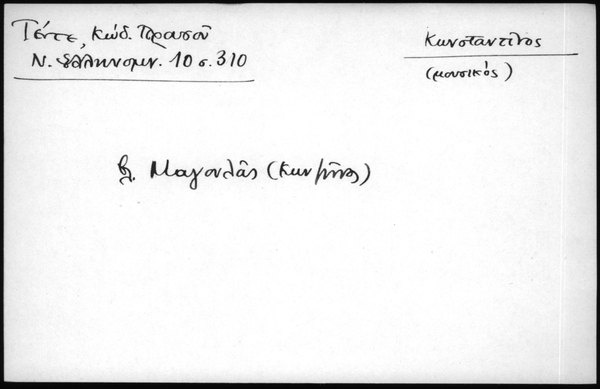 Τέντε, Κώδ. Πρασοῦ
Ν. Ἑλληνομν. 10 σ. 310
Κωνσταντῖνος
(μουσικός)
βλ. Μαγουλᾶς (Κων/τῖνος)